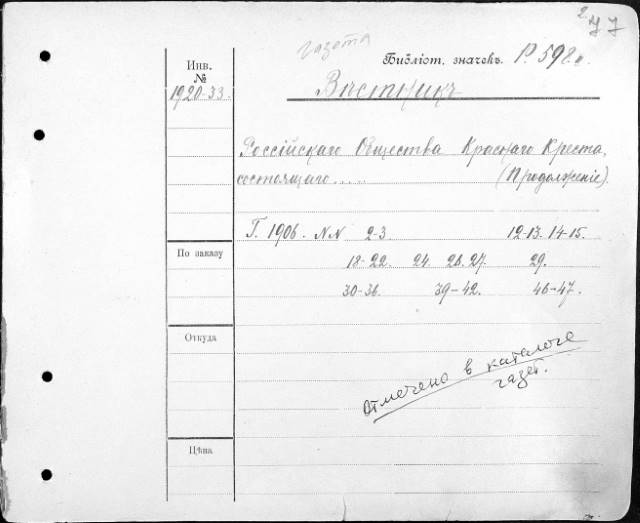 2. 77
газета
Библіот. значекъ.
Инв.
№
1920-33.
Вѣстникъ
Россійскаго Общества Краснаго Креста,
состоящаго..... (Продолженіе).
Г. 1906. NN 2-3 12-13. 14-15.
По заказу
18-22. 24. 26. 27. 29.
30-36. 39-42. 46-47.
Откуда
Отмечено в каталоге
газет.
Цѣна